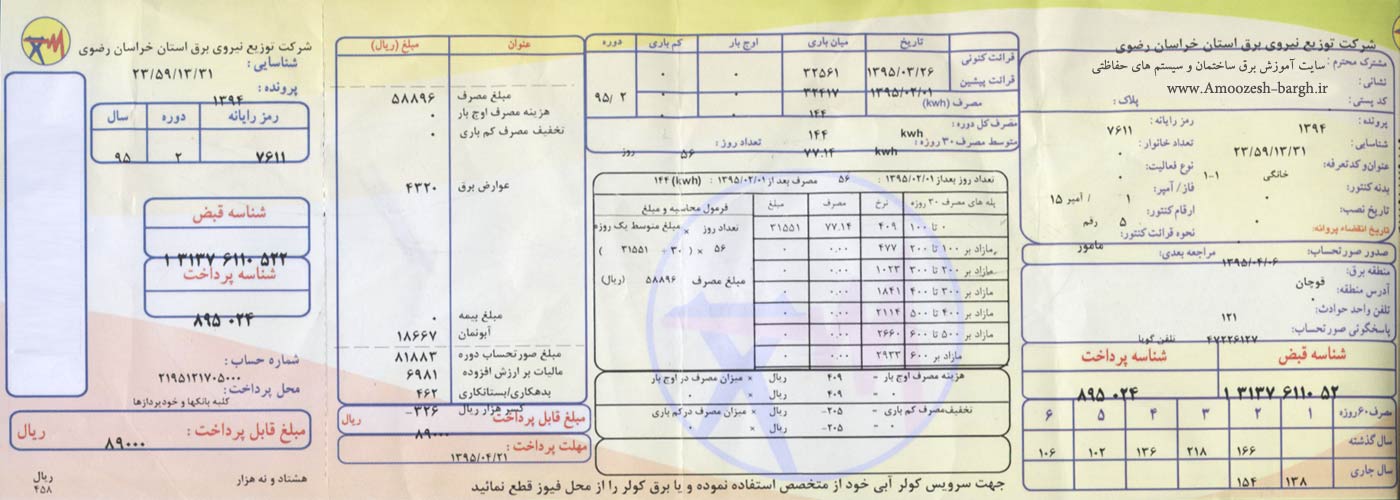 شرکت توزیع نیروی برق استان خراسان رضوی
مشترک محترم :
سایت آموزش برق ساختمان و سیستم های حفاظتی
نشانی :
www.Amoozesh-bargh.ir
کد پستی :
پلاک :
پرونده : ۱۳۹۴
رمز رایانه : ۷۶۱۱
شناسایی : ۲۳/۵۹/۱۳/۳۱
تعداد خانوار : ۰
عنوان و کد تعرفه : خانگی ۱-۱
نوع فعالیت : ۰
بدنه کنتور : ۰
فاز / آمپر : ۱ / آمپر ۱۵
تاریخ نصب :
ارقام کنتور : ۵ رقم
تاریخ انقضاء پروانه : ۰
نحوه قرائت کنتور : مامور
صدور صورتحساب :
مراجعه بعدی : ۱۳۹۵/۰۴/۰۶
منطقه برق : قوچان
آدرس منطقه :
تلفن واحد حوادث : ۱۲۱
پاسخگوئی صورتحساب : ۴۷۲۲۶۱۲۷ تلفن گویا
شناسه قبض شناسه پرداخت
۱ ۳۱۳۷ ۶۱۱۰ ۵۲ ۸۹۵ ۰۲۴
مصرف ۶۰ روزه ۱ ۲ ۳ ۴ ۵ ۶
سال گذشته ۱۶۶ ۲۱۸ ۱۳۶ ۱۰۲ ۱۰۶
سال جاری ۱۳۸ ۱۵۴
تاریخ میان باری اوج بار کم باری دوره
قرائت کنونی ۱۳۹۵/۰۳/۲۶ ۳۲۵۶۱ ۰ ۰
قرائت پیشین ۱۳۹۵/۰۲/۰۱ ۳۲۴۱۷ ۰ ۰ ۹۵/ ۲
مصرف (kwh) ۱۴۴ ۰ ۰
مصرف کل دوره : kwh ۱۴۴
متوسط مصرف ۳۰ روزه : kwh ۷۷.۱۴ تعداد روز : ۵۶ روز
تعداد روز بعد از ۱۳۹۵/۰۲/۰۱ : ۵۶ مصرف بعد از ۱۳۹۵/۰۲/۰۱ : (kwh) ۱۴۴
پله های مصرف ۳۰ روزه نرخ مصرف مبلغ فرمول محاسبه و مبلغ
۰ تا ۱۰۰ ۴۰۹ ۷۷.۱۴ ۳۱۵۵۱ تعداد روز × مبلغ متوسط یک روزه
مازاد بر ۱۰۰ تا ۲۰۰ ۴۷۷ ۰.۰۰ ۰ ۵۶ × ( ۳۰ ÷ ۳۱۵۵۱ )
مازاد بر ۲۰۰ تا ۳۰۰ ۱۰۲۳ ۰.۰۰ ۰ مبلغ مصرف ۵۸۸۹۶ (ریال)
مازاد بر ۳۰۰ تا ۴۰۰ ۱۸۴۱ ۰.۰۰ ۰
مازاد بر ۴۰۰ تا ۵۰۰ ۲۱۱۴ ۰.۰۰ ۰
مازاد بر ۵۰۰ تا ۶۰۰ ۲۶۶۰ ۰.۰۰ ۰
مازاد بر ۶۰۰ ۲۹۳۳ ۰.۰۰ ۰
هزینه مصرف اوج بار = ۴۰۹ ریال × میزان مصرف در اوج بار
۰ = ۴۰۹ ریال × ۰
تخفیف مصرف کم باری = ۲۰۵- ریال × میزان مصرف در کم باری
۰ = ۲۰۵- ریال × ۰
جهت سرویس کولر آبی خود از متخصص استفاده نموده و یا برق کولر را از محل فیوز قطع نمائید
عنوان مبلغ (ریال)
مبلغ مصرف ۵۸۸۹۶
هزینه مصرف اوج بار ۰
تخفیف مصرف کم باری ۰
عوارض برق ۴۳۲۰
مبلغ بیمه ۰
آبونمان ۱۸۶۶۷
مبلغ صورتحساب دوره ۸۱۸۸۳
مالیات بر ارزش افزوده ۶۹۸۱
بدهکاری/بستانکاری ۴۶۲
کسر هزار ریال ۳۲۶-
مبلغ قابل پرداخت : ۸۹۰۰۰ ریال
مهلت پرداخت : ۱۳۹۵/۰۴/۲۱
شرکت توزیع نیروی برق استان خراسان رضوی
شناسایی : ۲۳/۵۹/۱۳/۳۱
پرونده : ۱۳۹۴
رمز رایانه دوره سال
۷۶۱۱ ۲ ۹۵
شناسه قبض
۱ ۳۱۳۷ ۶۱۱۰ ۵۲۲
شناسه پرداخت
۸۹۵ ۰۲۴
شماره حساب :
۲۱۹۵۱۲۱۷۰۵۰۰۰
محل پرداخت :
کلیه بانکها و خودپردازها
مبلغ قابل پرداخت : ۸۹۰۰۰ ریال
هشتاد و نه هزار ریال
۴۵۸